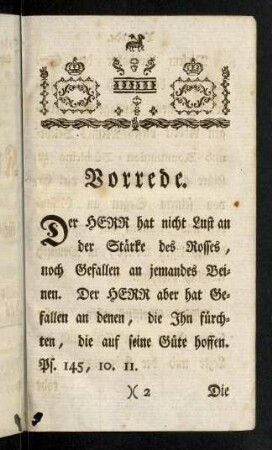 Vorrede.
Der HERR hat nicht Lust an
der Stärke des Rosses,
noch Gefallen an jemandes Bei-
nen. Der HERR aber hat Ge-
fallen an denen, die Ihn fürch-
ten, die auf seine Güte hoffen.
Ps. 145, 10. 11.
)( 2 Die